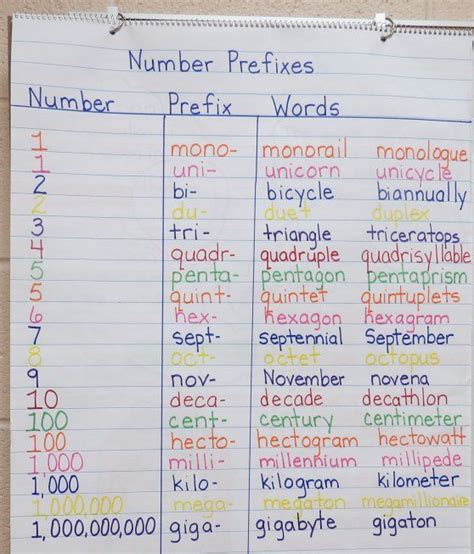 Number Prefixes
Number Prefix Words
1 mono- monorail monologue
1 uni- unicorn unicycle
2 bi- bicycle biannually
2 du- duet duplex
3 tri- triangle triceratops
4 quadr- quadruple quadrisyllable
5 penta- pentagon pentaprism
5 quint- quintet quintuplets
6 hex- hexagon hexagram
7 sept- septennial September
8 oct- octet octopus
9 nov- November novena
10 deca- decade decathlon
100 cent- century centimeter
100 hecto- hectogram hectowatt
1,000 milli- millennium millipede
1,000 kilo- kilogram kilometer
1,000,000 mega- megaton megamillionaire
1,000,000,000 giga- gigabyte gigaton